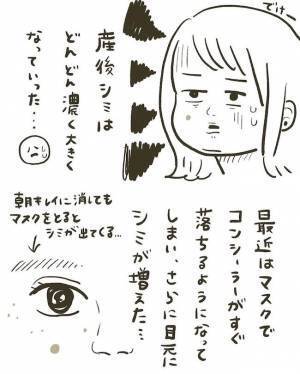 でけ
産後シミは
どんどん濃く大きく
なっていった…
最近はマスクで
コンシーラーがすぐ
落ちるようになって
しまい、さらに目元に
シミが増えた…
朝キレイに消しても
マスクをとると
シミが出てくる…